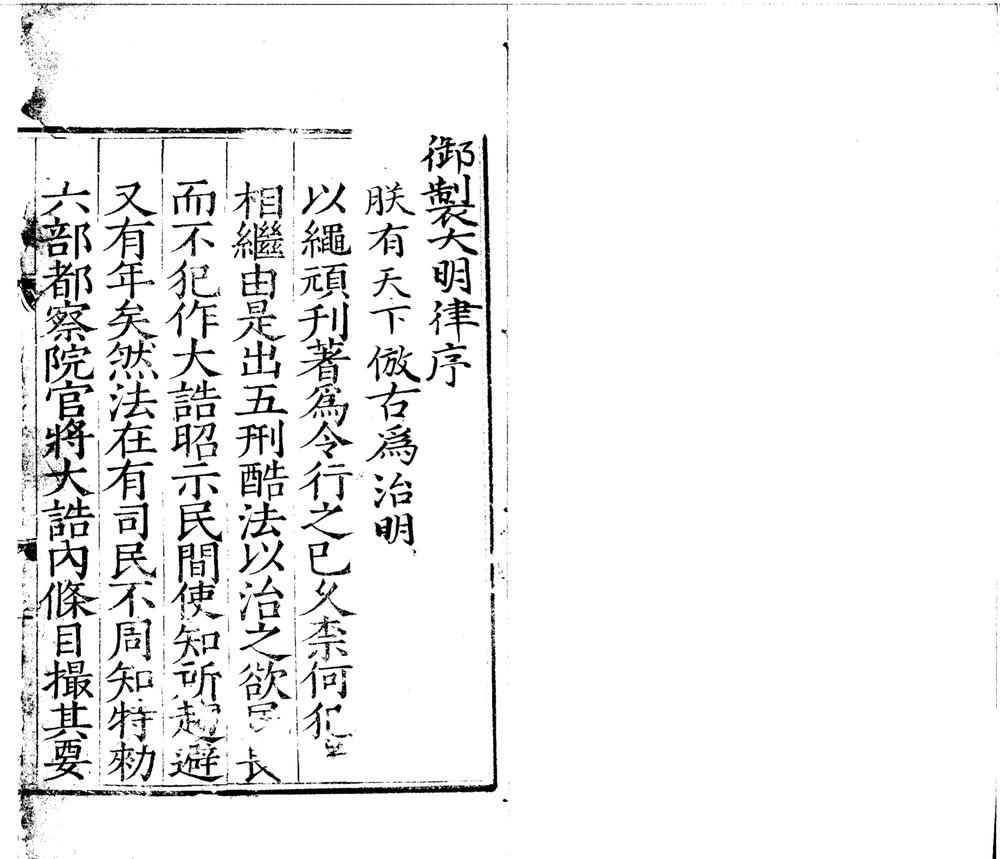 御製大明律序
朕有天下倣古爲治明
以繩頑刋著爲令行之已久柰何犯者
相繼由是出五刑酷法以治之欲民畏
而不犯作大誥昭示民間使知所趨避
又有年矣然法在有司民不周知特勑
六部都察院官將大誥內條目撮其要